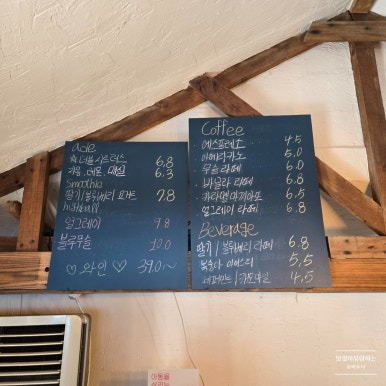 ade
☆ 더블 시트러스 6.8
자몽. 레몬. 매실 6.3
Smoothie
딸기/블루베리 요거트 7.8
highball
얼그레이 9.8
블루무슬 10.0
♡ 와인 ♡ 39.0~
Coffee
에스프레소 4.5
아메리카노 5.0
무슬 라떼 6.0
바닐라 라떼 6.8
카라멜 마끼아또 6.5
얼그레이 라떼 6.8
Beverage
딸기 / 블루베리 라떼 6.8
복숭아 아이스티 5.5
페퍼민트 / 카모마일 4.5
아동을